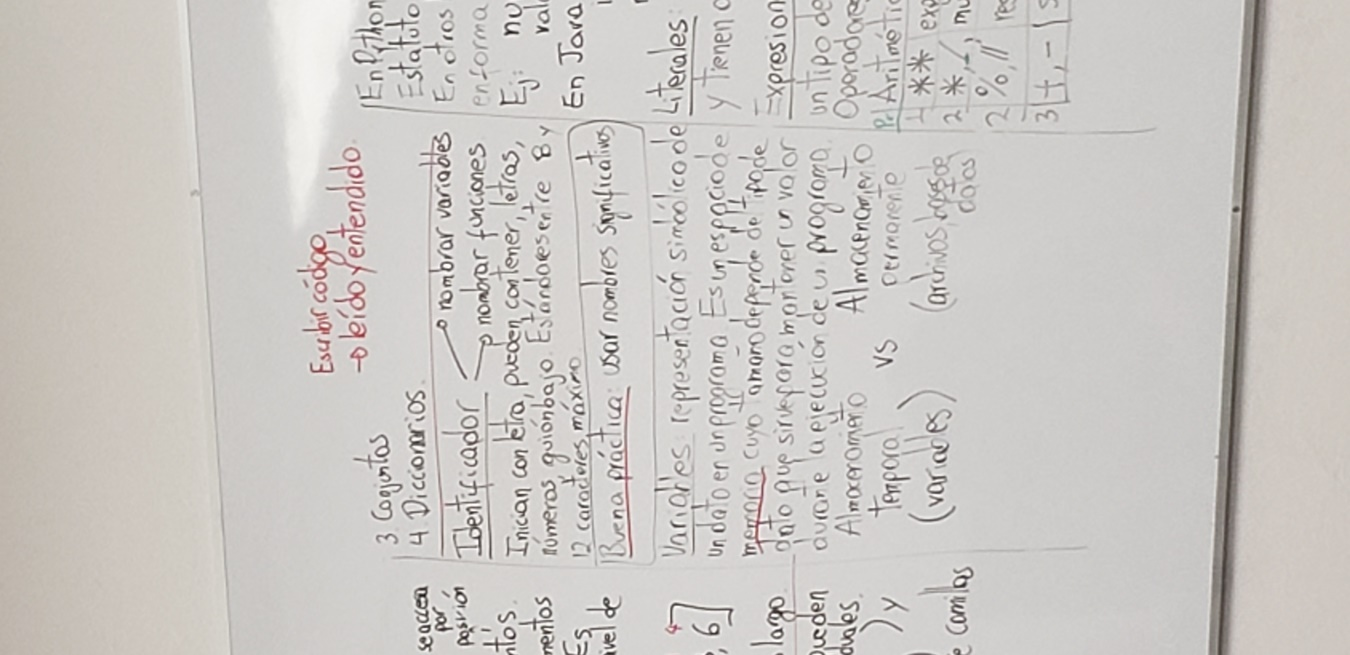 Escribir código
→ leído y entendido.
3 Conjuntos
4 Diccionarios.
Identificador → nombrar variables
→ nombrar funciones
Inician con letra, pueden contener, letras,
números guión bajo. Estándares entre 8 y
12 caracteres máximo
Buena práctica: usar nombres significativos
Variables: representación simbólica de
un dato en un programa. Es un espacio de
memoria cuyo tamaño depende del tipo de
dato que sirve para mantener un valor
durante la ejecución de un programa.
Almacenamiento Temporal (variables) vs Almacenamiento permanente (archivos, bases de datos)
se accesa
por
posición
6]
largo
pueden
) y
comillas
En Python
Estatuto
En otros
en forma
Ej: nu
En Java
Literales:
y tienen
Expresion
un tipo de
Operadores
Pr Aritmétic
1 ** exp
2 *, /, mu
2 %, //
3 +, -